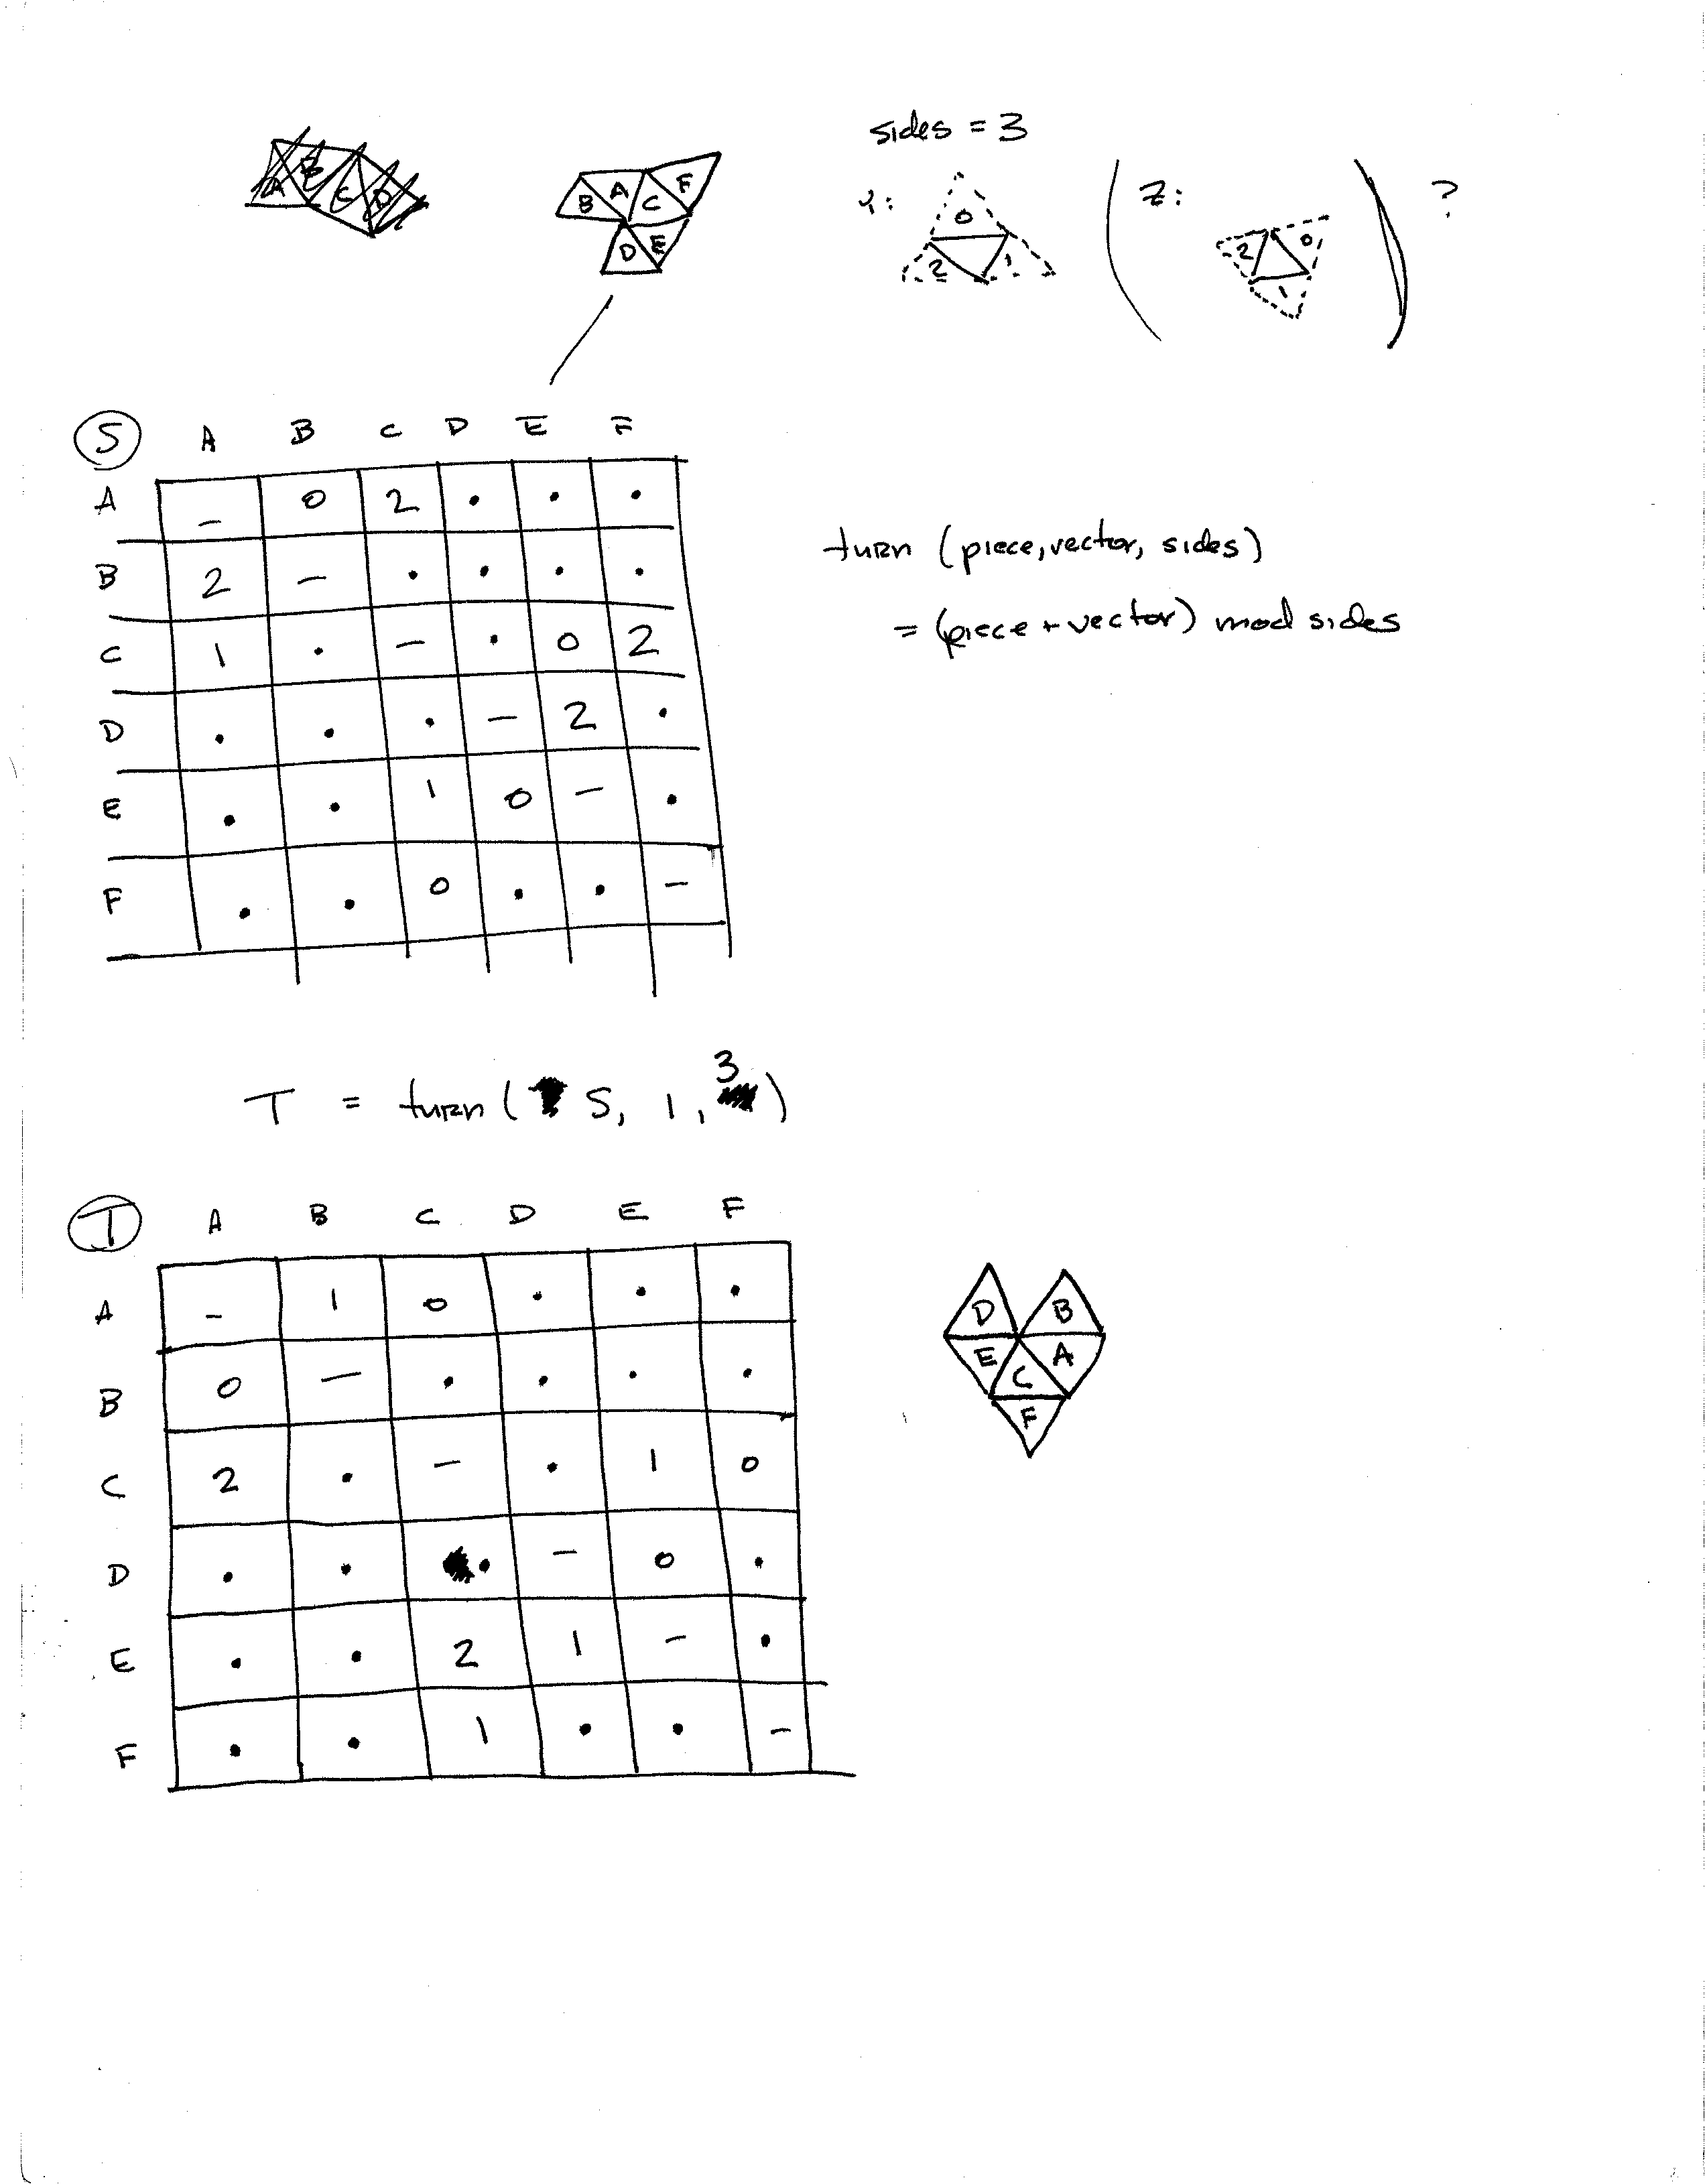 A B C D
B A C F
D E
sides = 3
Y:
0
2 1
Z:
2 0
1
?
S A B C D E F
A - 0 2 . . .
B 2 - . . . .
C 1 . - . 0 2
D . . . - 2 .
E . . 1 0 - .
F . . 0 . . -
turn (piece, vector, sides)
= (piece + vector) mod sides
T = turn ( S, 1, 3 )
T A B C D E F
A - 1 0 . . .
B 0 - . . . .
C 2 . - . 1 0
D . . . - 0 .
E . . 2 1 - .
F . . 1 . . -
D B
E C A
F